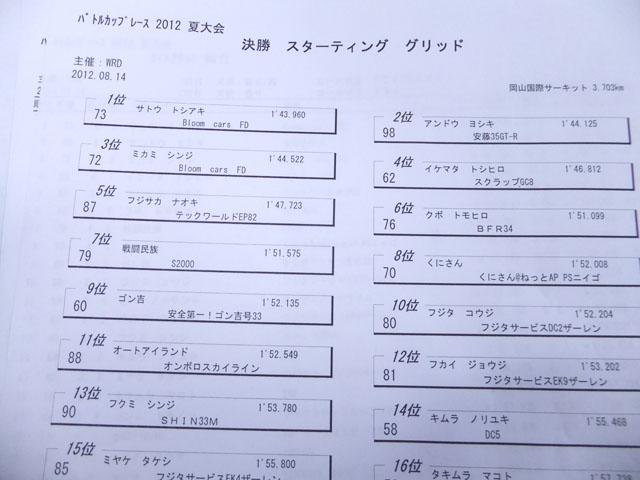 ﾊﾞﾄﾙｶｯﾌﾟﾚｰｽ 2012 夏大会
決勝 スターティング グリッド
主催：WRD
2012.08.14
岡山国際サーキット 3.703km
1位
73 サトウ トシアキ 1'43.960
Bloom cars FD
2位
98 アンドウ ヨシキ 1'44.125
安藤35GT-R
3位
72 ミカミ シンジ 1'44.522
Bloom cars FD
4位
62 イケマタ トシヒロ 1'46.812
スクラップGC8
5位
87 フジサカ ナオキ 1'47.723
テックワールドEP82
6位
76 クボ トモヒロ 1'51.099
BFR34
7位
79 戦闘民族 1'51.575
S2000
8位
70 くにさん 1'52.008
くにさん@ねっとAP PSニイゴ
9位
60 ゴン吉 1'52.135
安全第一！ゴン吉号33
10位
80 フジタ コウジ 1'52.204
フジタサービスDC2ザーレン
11位
88 オートアイランド 1'52.549
オンボロスカイライン
12位
81 フカイ ジョウジ 1'53.202
フジタサービスEK9ザーレン
13位
90 フクミ シンジ 1'53.780
SHIN33M
14位
58 キムラ ノリユキ 1'55.468
DC5
15位
85 ミヤケ タケシ 1'55.800
フジタサービスEK4ザーレン
16位
タキムラ マコト